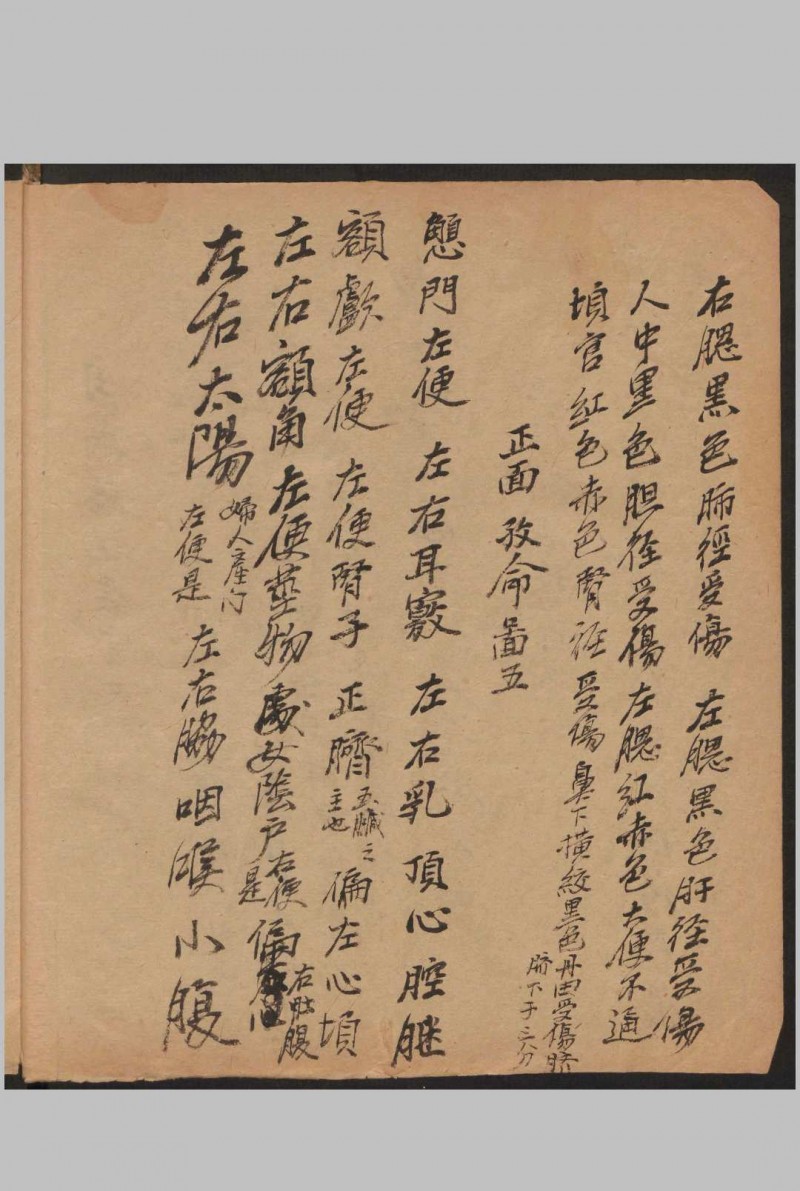 右腮黑色肺徑受傷 左腮黑色肝徑受傷
人中黑色胆徑受傷 左腮紅赤色大便不通
頃宫 紅色赤色腎徑受傷 鼻下横絞黑色丹田受傷臍
臍下手三分
正面致命啚五
顖門左便 左右耳竅 左右乳 頂心腔
額顱左便 左便腎子 正臍五臟之主也 偏左心頃
左右額角左便莖物處女陰户右便是 偏右肚腹
左右太陽婦人產门左便是 左右脇咽喉小腹